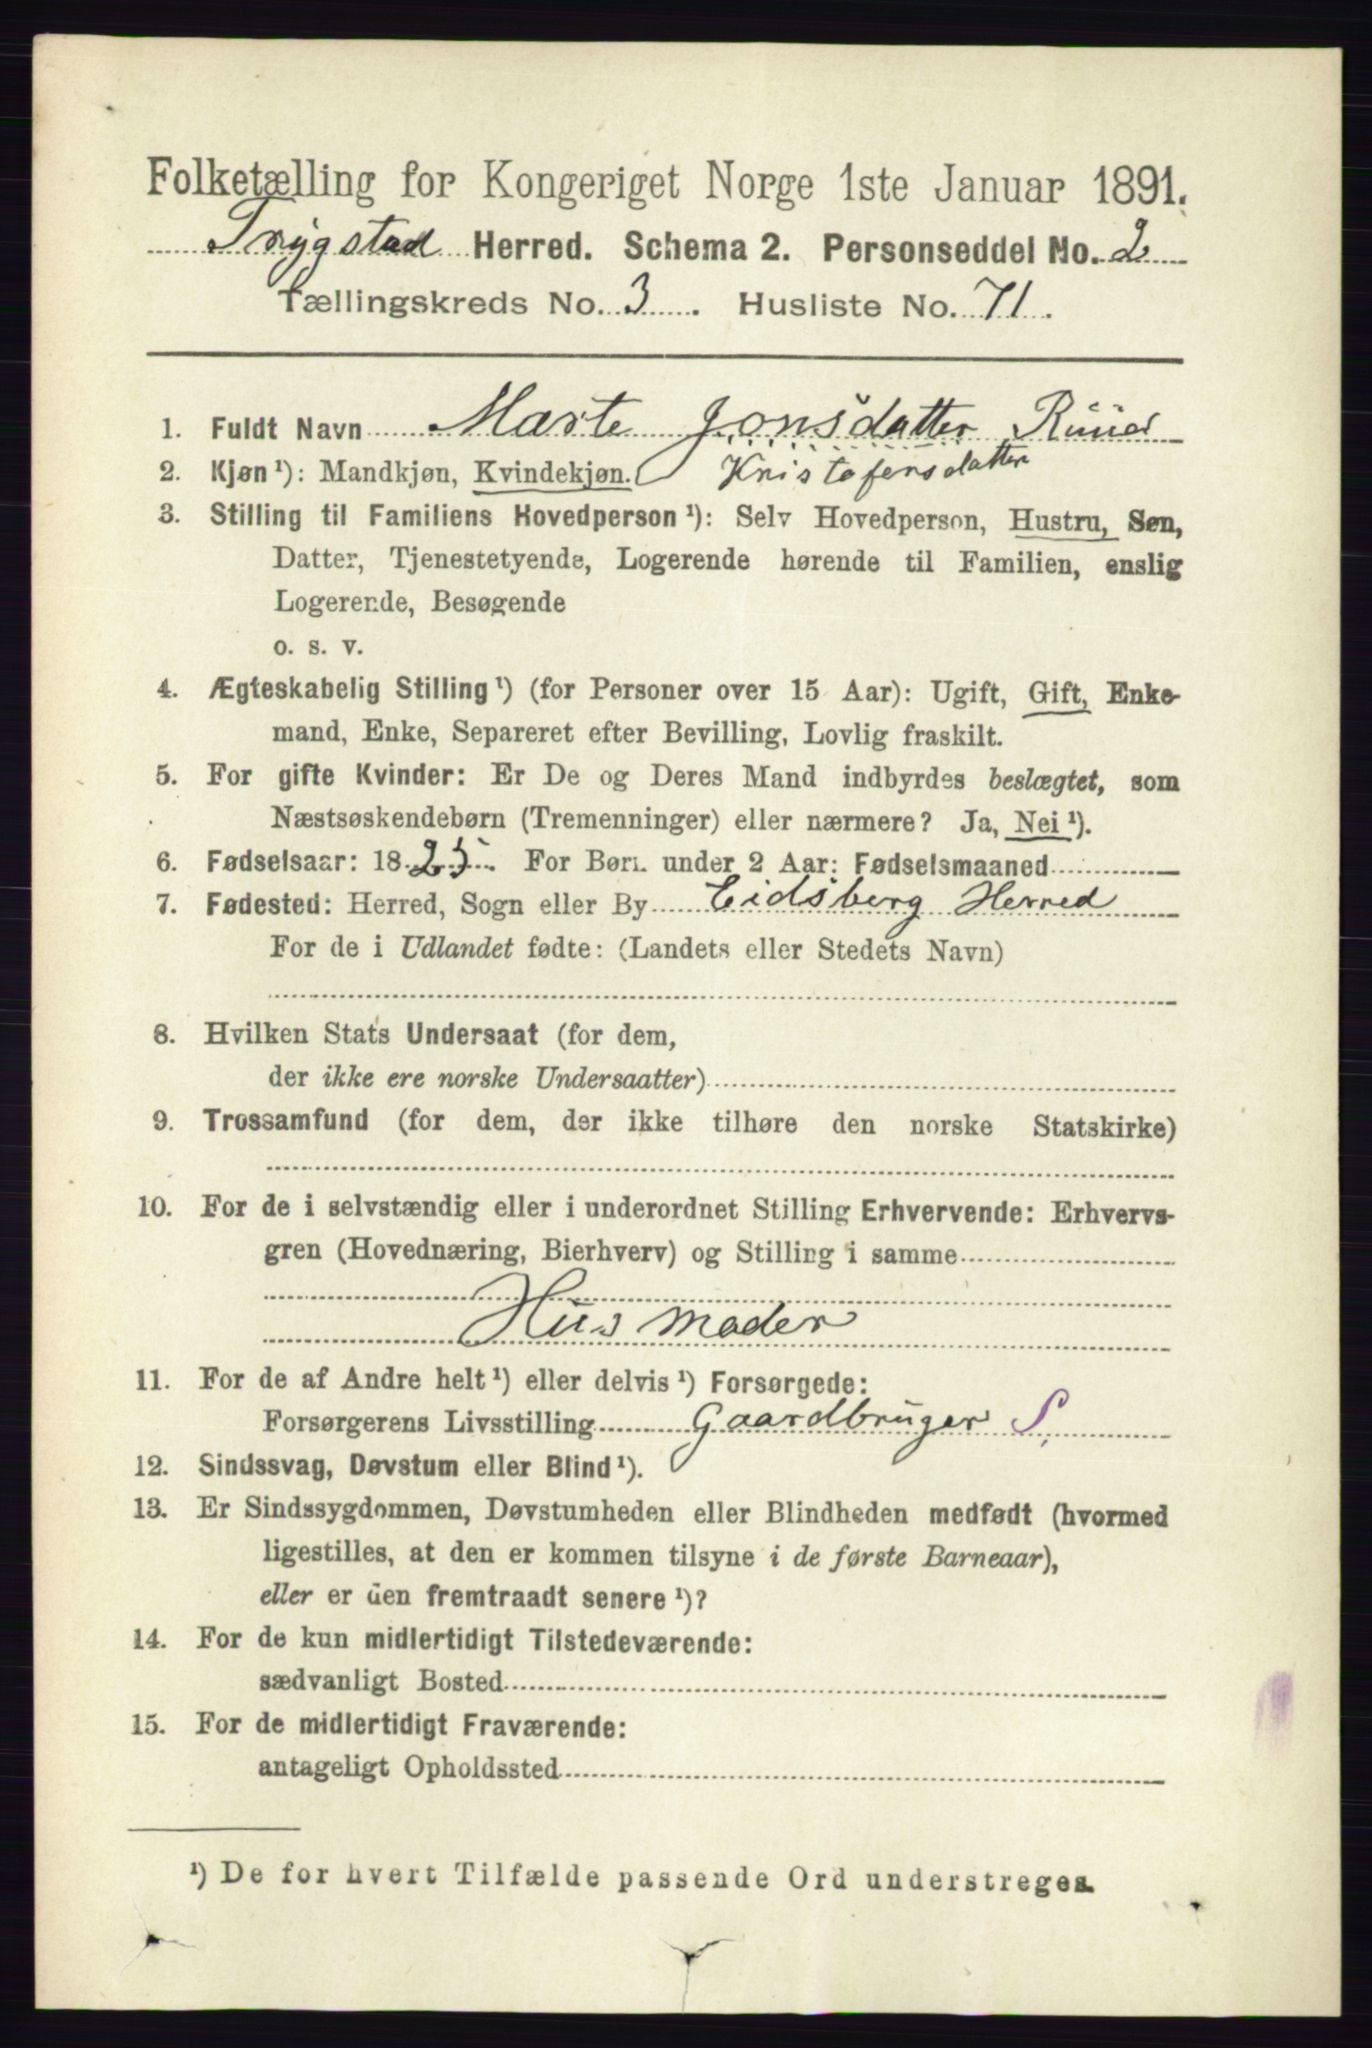 Folketælling for Kongeriget Norge 1ste Januar 1891.
Trygstad Herred. Schema 2. Personseddel No. 2
Tællingskreds No. 3. Husliste No. 71.
1. Fuldt Navn Marte Jonsdatter Ruud
2. Kjøn¹): Mandkjøn, Kvindekjøn. Kristofersdatter
3. Stilling til Familiens Hovedperson¹): Selv Hovedperson, Hustru, Søn,
Datter, Tjenestetyende, Logerende hørende til Familien, enslig
Logerende, Besøgende
o. s. v.
4. Ægteskabelig Stilling¹) (for Personer over 15 Aar): Ugift, Gift, Enke-
mand, Enke, Separeret efter Bevilling, Lovlig fraskilt.
5. For gifte Kvinder: Er De og Deres Mand indbyrdes beslægtet, som
Næstsøskendebørn (Tremenninger) eller nærmere? Ja, Nei¹).
6. Fødselsaar: 1825. For Børn under 2 Aar: Fødselsmaaned
7. Fødested: Herred, Sogn eller By Eidsberg Herred
For de i Udlandet fødte: (Landets eller Stedets Navn)
8. Hvilken Stats Undersaat (for dem,
der ikke ere norske Undersaatter)
9. Trossamfund (for dem, der ikke tilhøre den norske Statskirke)
10. For de i selvstændig eller i underordnet Stilling Erhvervende: Erhvervs-
gren (Hovednæring, Bierhverv) og Stilling i samme
Husmoder
11. For de af Andre helt¹) eller delvis¹) Forsørgede:
Forsørgerens Livsstilling Gaardbruger S.
12. Sindssvag, Døvstum eller Blind¹).
13. Er Sindssygdommen, Døvstumheden eller Blindheden medfødt (hvormed
ligestilles, at den er kommen tilsyne i de første Barneaar),
eller er den fremtraadt senere¹)?
14. For de kun midlertidigt Tilstedeværende:
sædvanligt Bosted
15. For de midlertidigt Fraværende:
antageligt Opholdssted
¹) De for hvert Tilfælde passende Ord understreges.